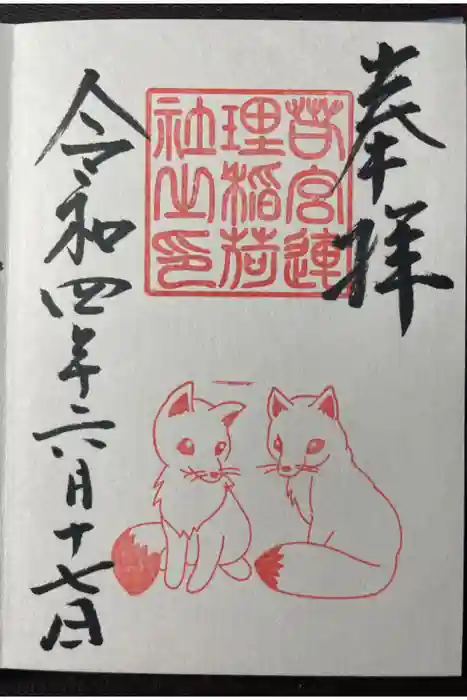 奉拝
若宮連
理稲荷
社之印
令和四年六月十七日